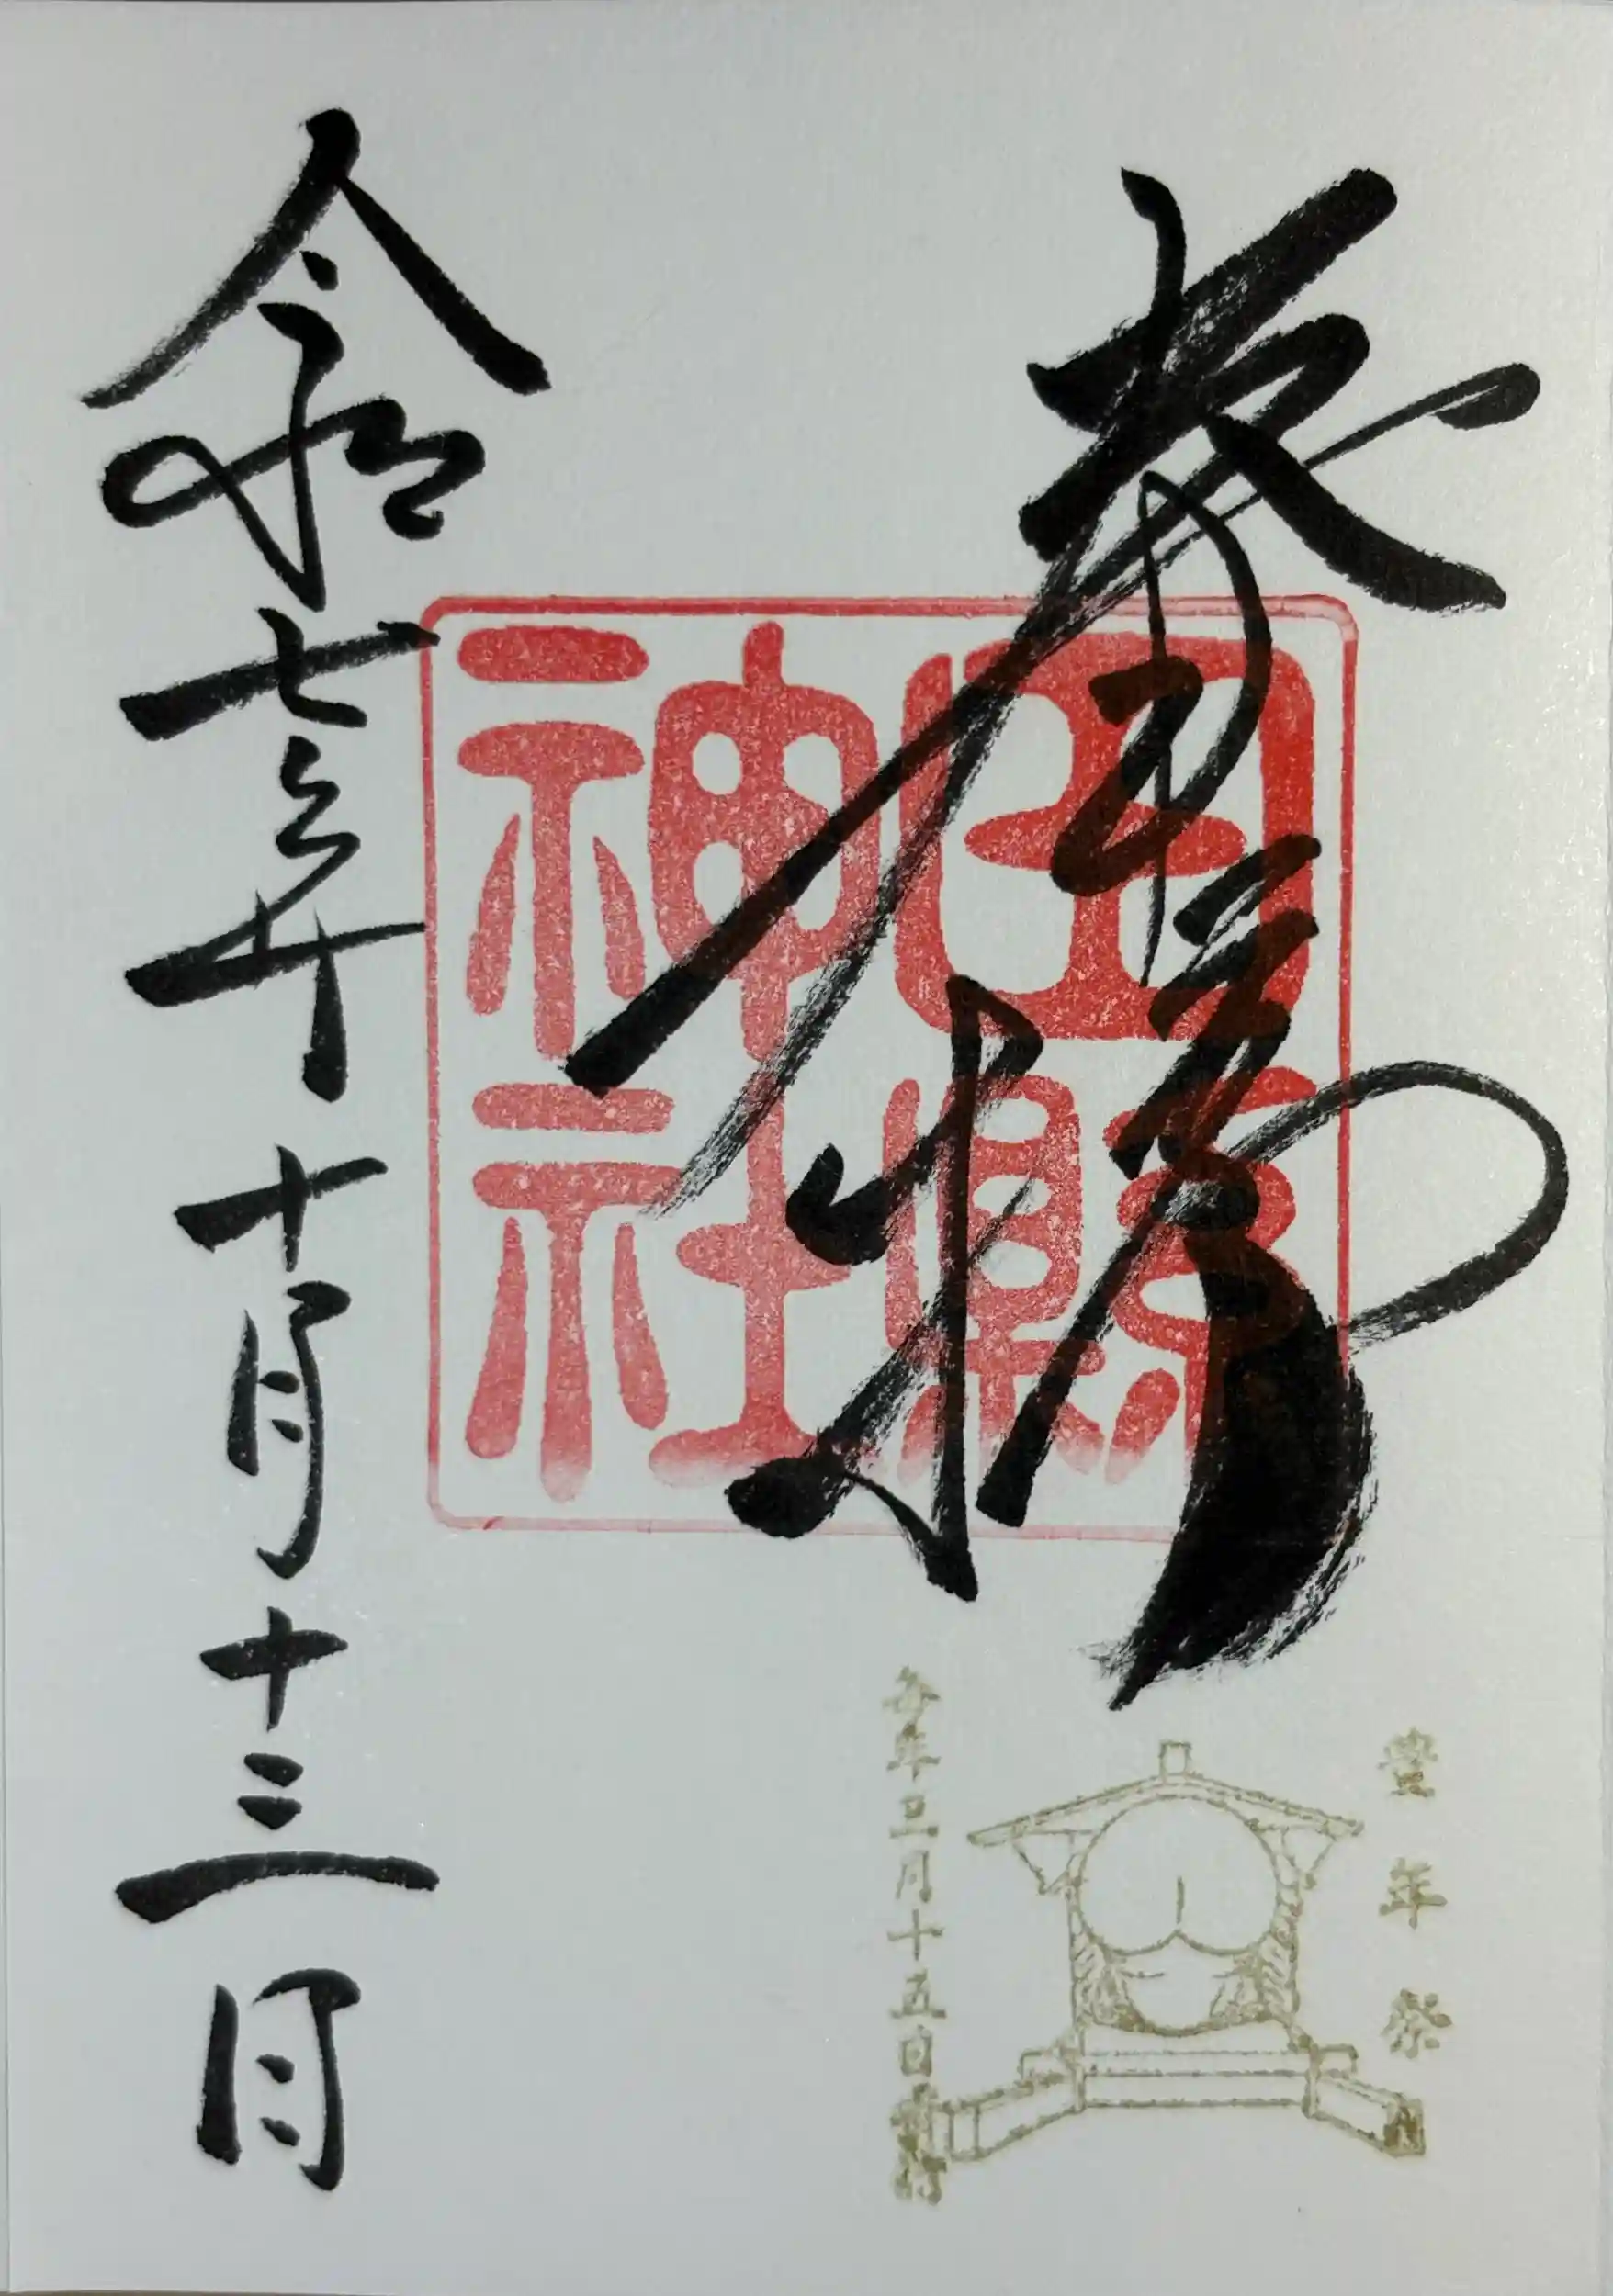 奉拝
田縣
神社
豊年祭
毎年三月十五日斎行
令和七年十月十三日